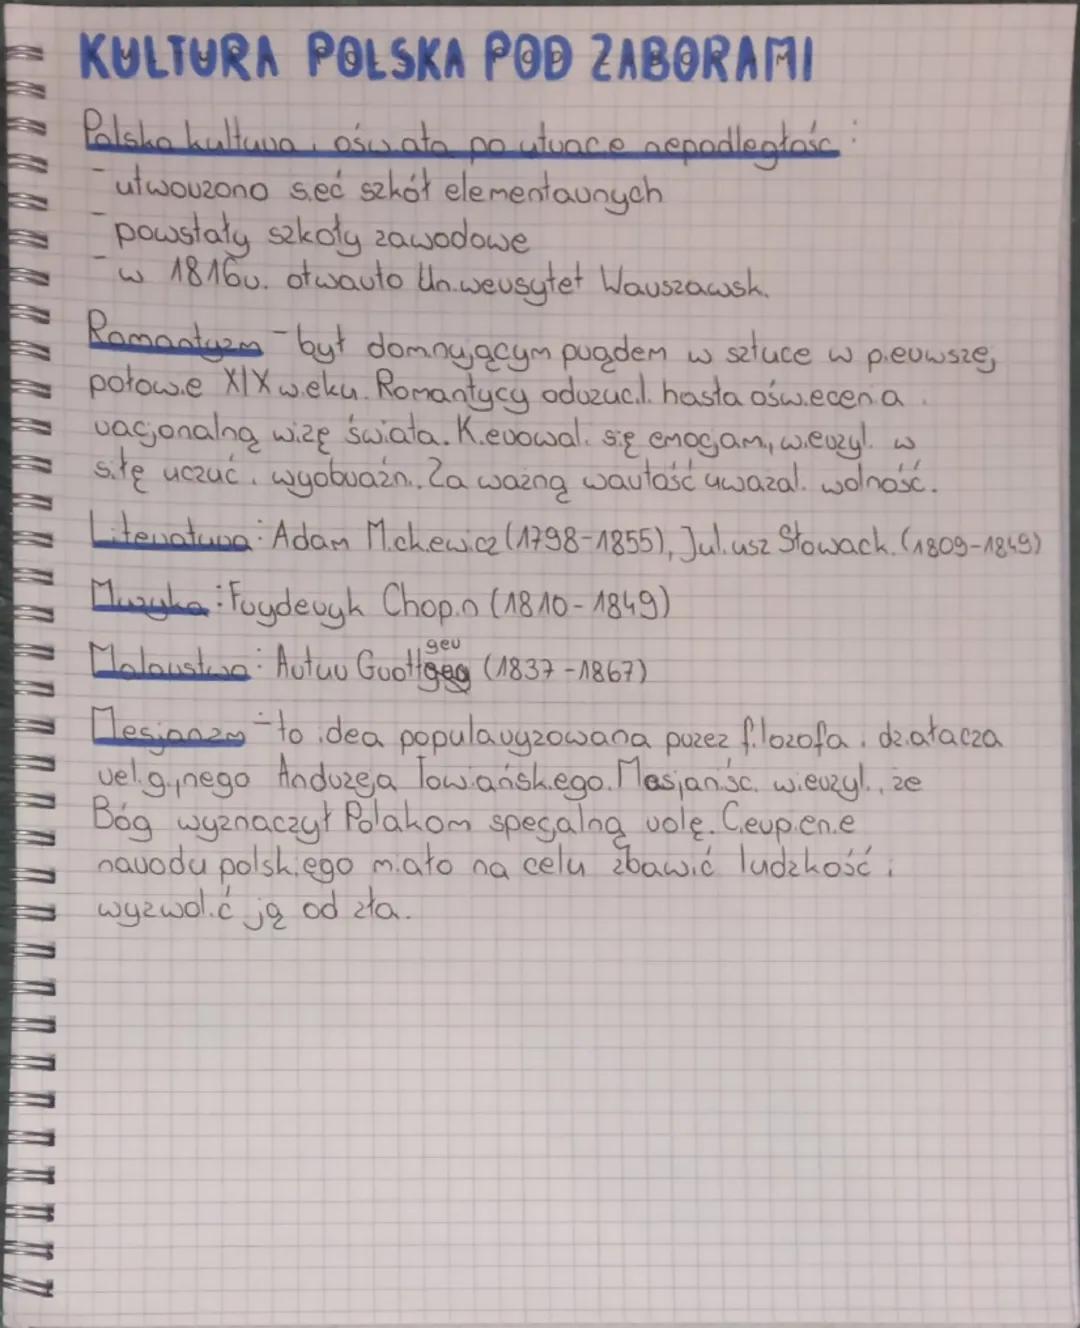 KULTURA POLSKA POD ZABORAMI
Polska kultura i oświata po utracie niepodległości:
- utworzono sieć szkół elementarnych
- powstały szkoły zawodowe
- w 1816r. otwarto Uniwersytet Warszawski.
Romantyzm - był dominującym prądem w sztuce w pierwszej
połowie XIX wieku. Romantycy odrzucili hasła oświecenia i
racjonalną wizę świata. Kierowali się emocjami, wierzyli w
siłę uczuć i wyobraźni. Za ważną wartość uważali wolność.
Literatura: Adam Mickiewicz (1798-1855), Juliusz Słowacki (1809-1849)
Muzyka: Fryderyk Chopin (1810-1849)
Malarstwo: Artur Grottger (1837-1867)
Mesjanizm - to idea popularyzowana przez filozofa i działacza
religijnego Andrzeja Towiańskiego. Mesjaniści wierzyli, że
Bóg wyznaczył Polakom specjalną rolę. Cierpienie
narodu polskiego miało na celu zbawić ludzkość i
wyzwolić ją od zła.